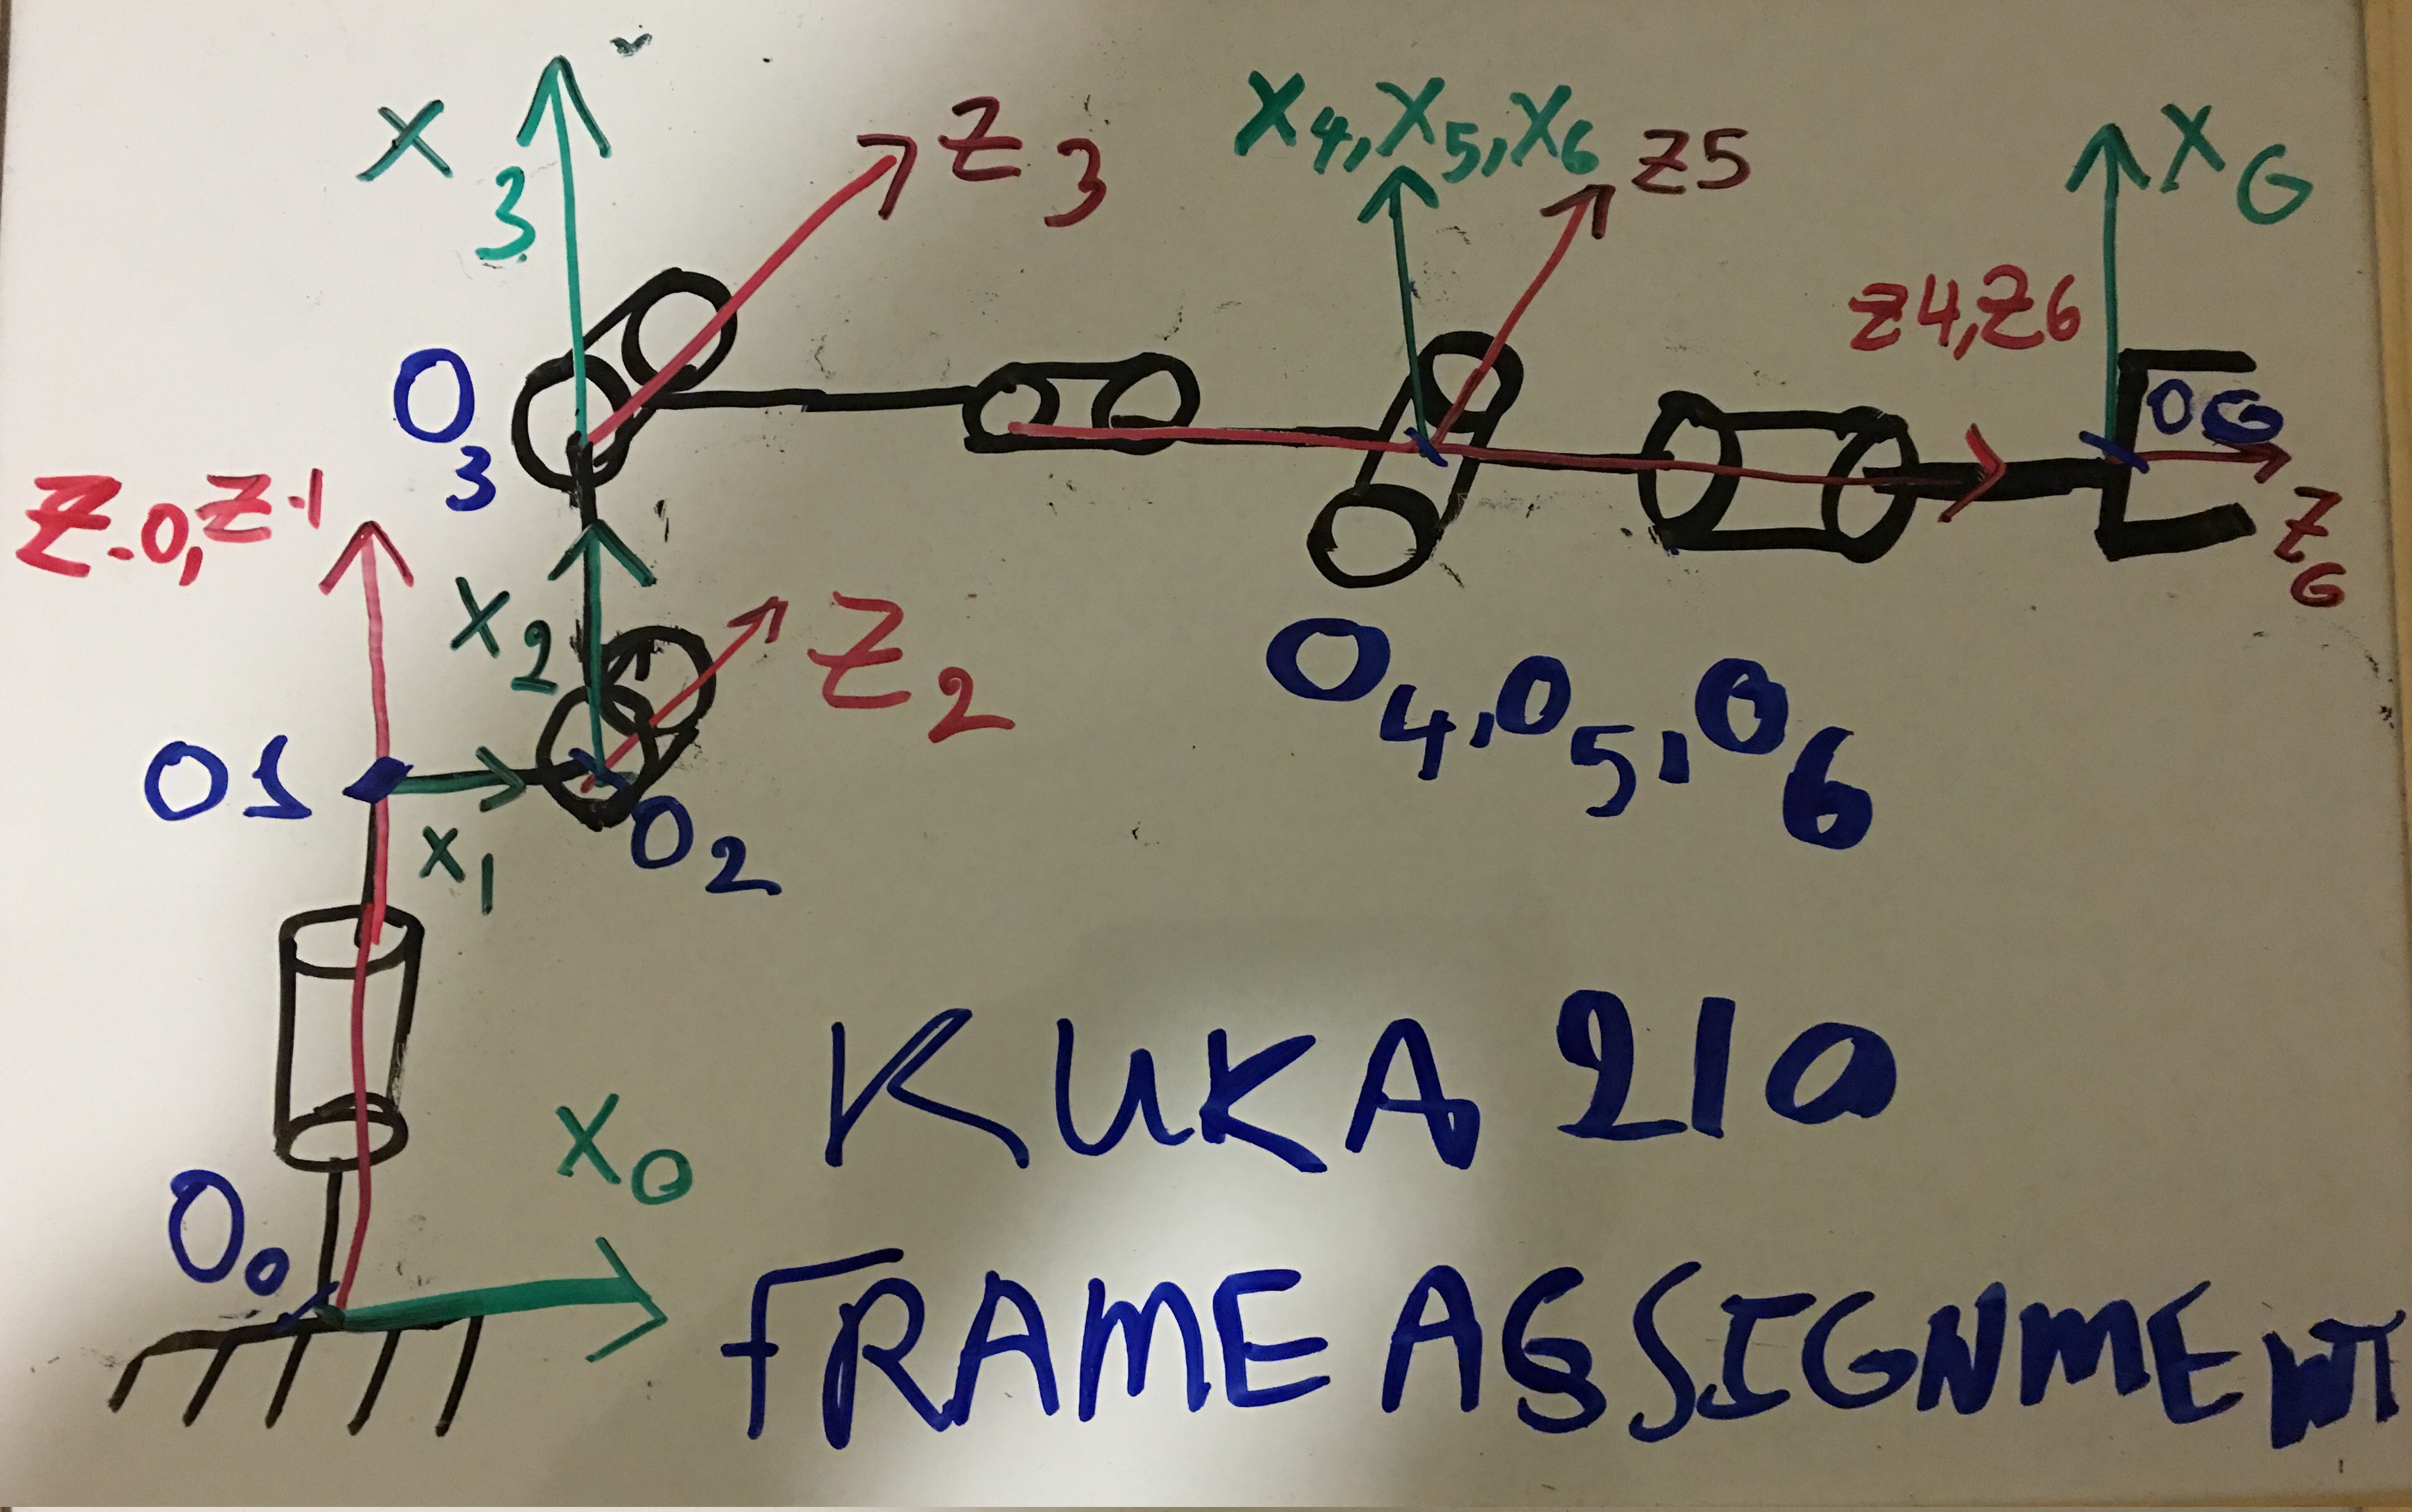 X3
Z3
X4,X5,X6
Z5
XG
O3
Z4,Z6
OG
Z-0,Z-1
ZG
X2
Z2
O4,O5,O6
O1
X1
O2
KUKA 210
X0
O0
FRAME ASSIGNMENT